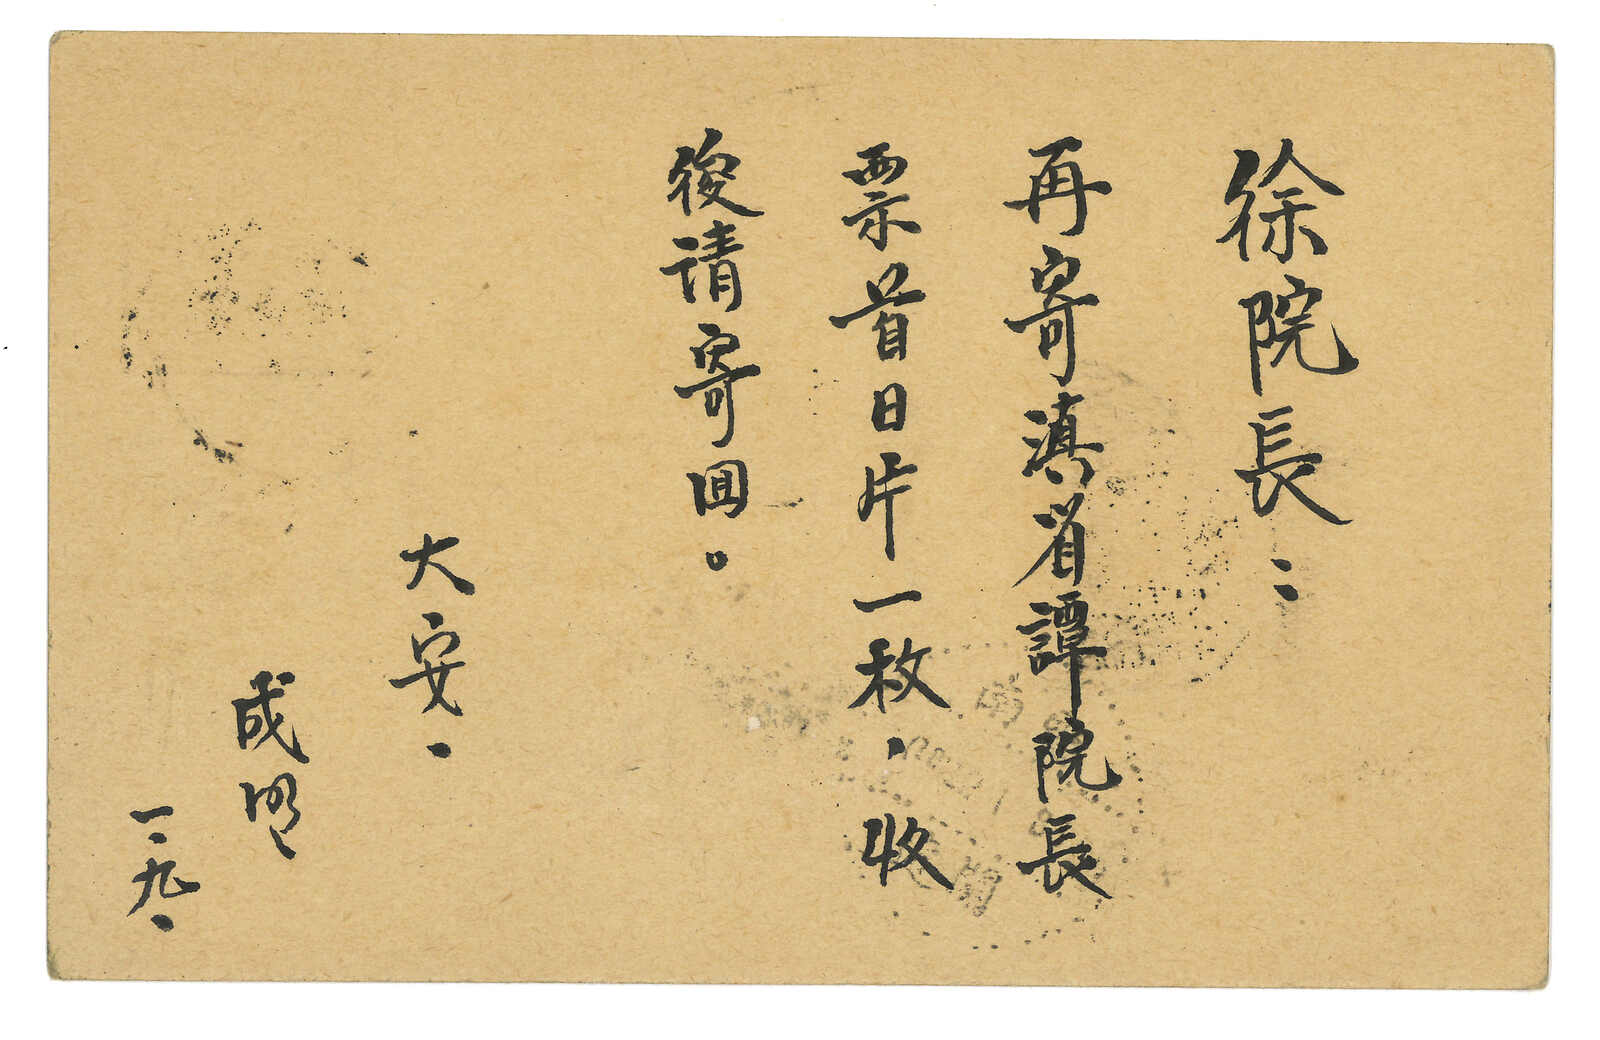 徐院長：
再寄滇省譚院長
票首日片一枚．收
後請寄回。
大安．
成
一．九．